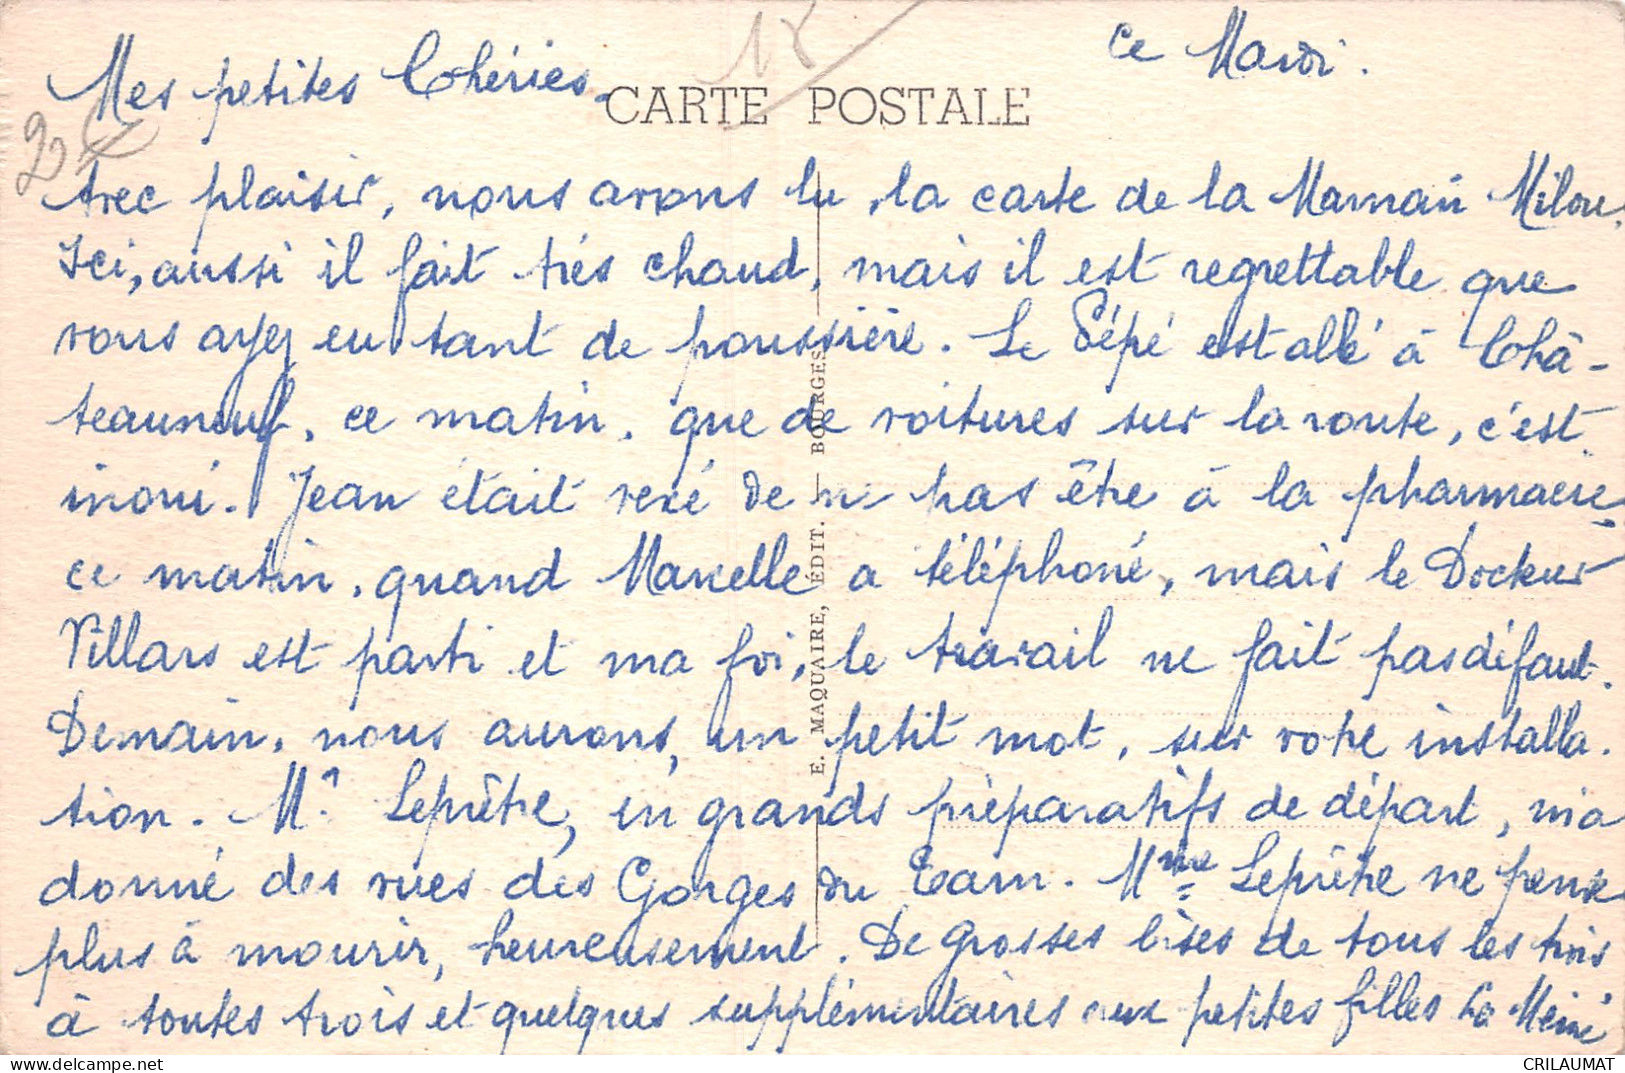 ce Mardi.
Mes petites Chéries.
CARTE POSTALE
Avec plaisir, nous avons lu, la carte de la Maman Milou.
Ici, aussi il fait très chaud, mais il est regrettable que
vous ayez eu tant de poussière. Le Pépé est allé à Châ-
teauneuf, ce matin, que de voitures sur la route, c'est
inouï. Jean était vexé de ne pas être à la pharmacie
ce matin, quand Marcelle a téléphoné, mais le Docteur
Villars est parti et ma foi, le travail ne fait pas défaut.
Demain, nous aurons, un petit mot, sur votre installa-
tion. Mr Leprêtre, en grands préparatifs de départ, m'a
donné des vues des Gorges du Tarn. Mme Leprêtre ne pense
plus à mourir, heureusement. De grosses bises de tous les trois
à toutes trois et quelques supplémentaires aux petites filles La Mémé
E. MAQUAIRE, ÉDIT. — BOURGES
CRILAUMAT